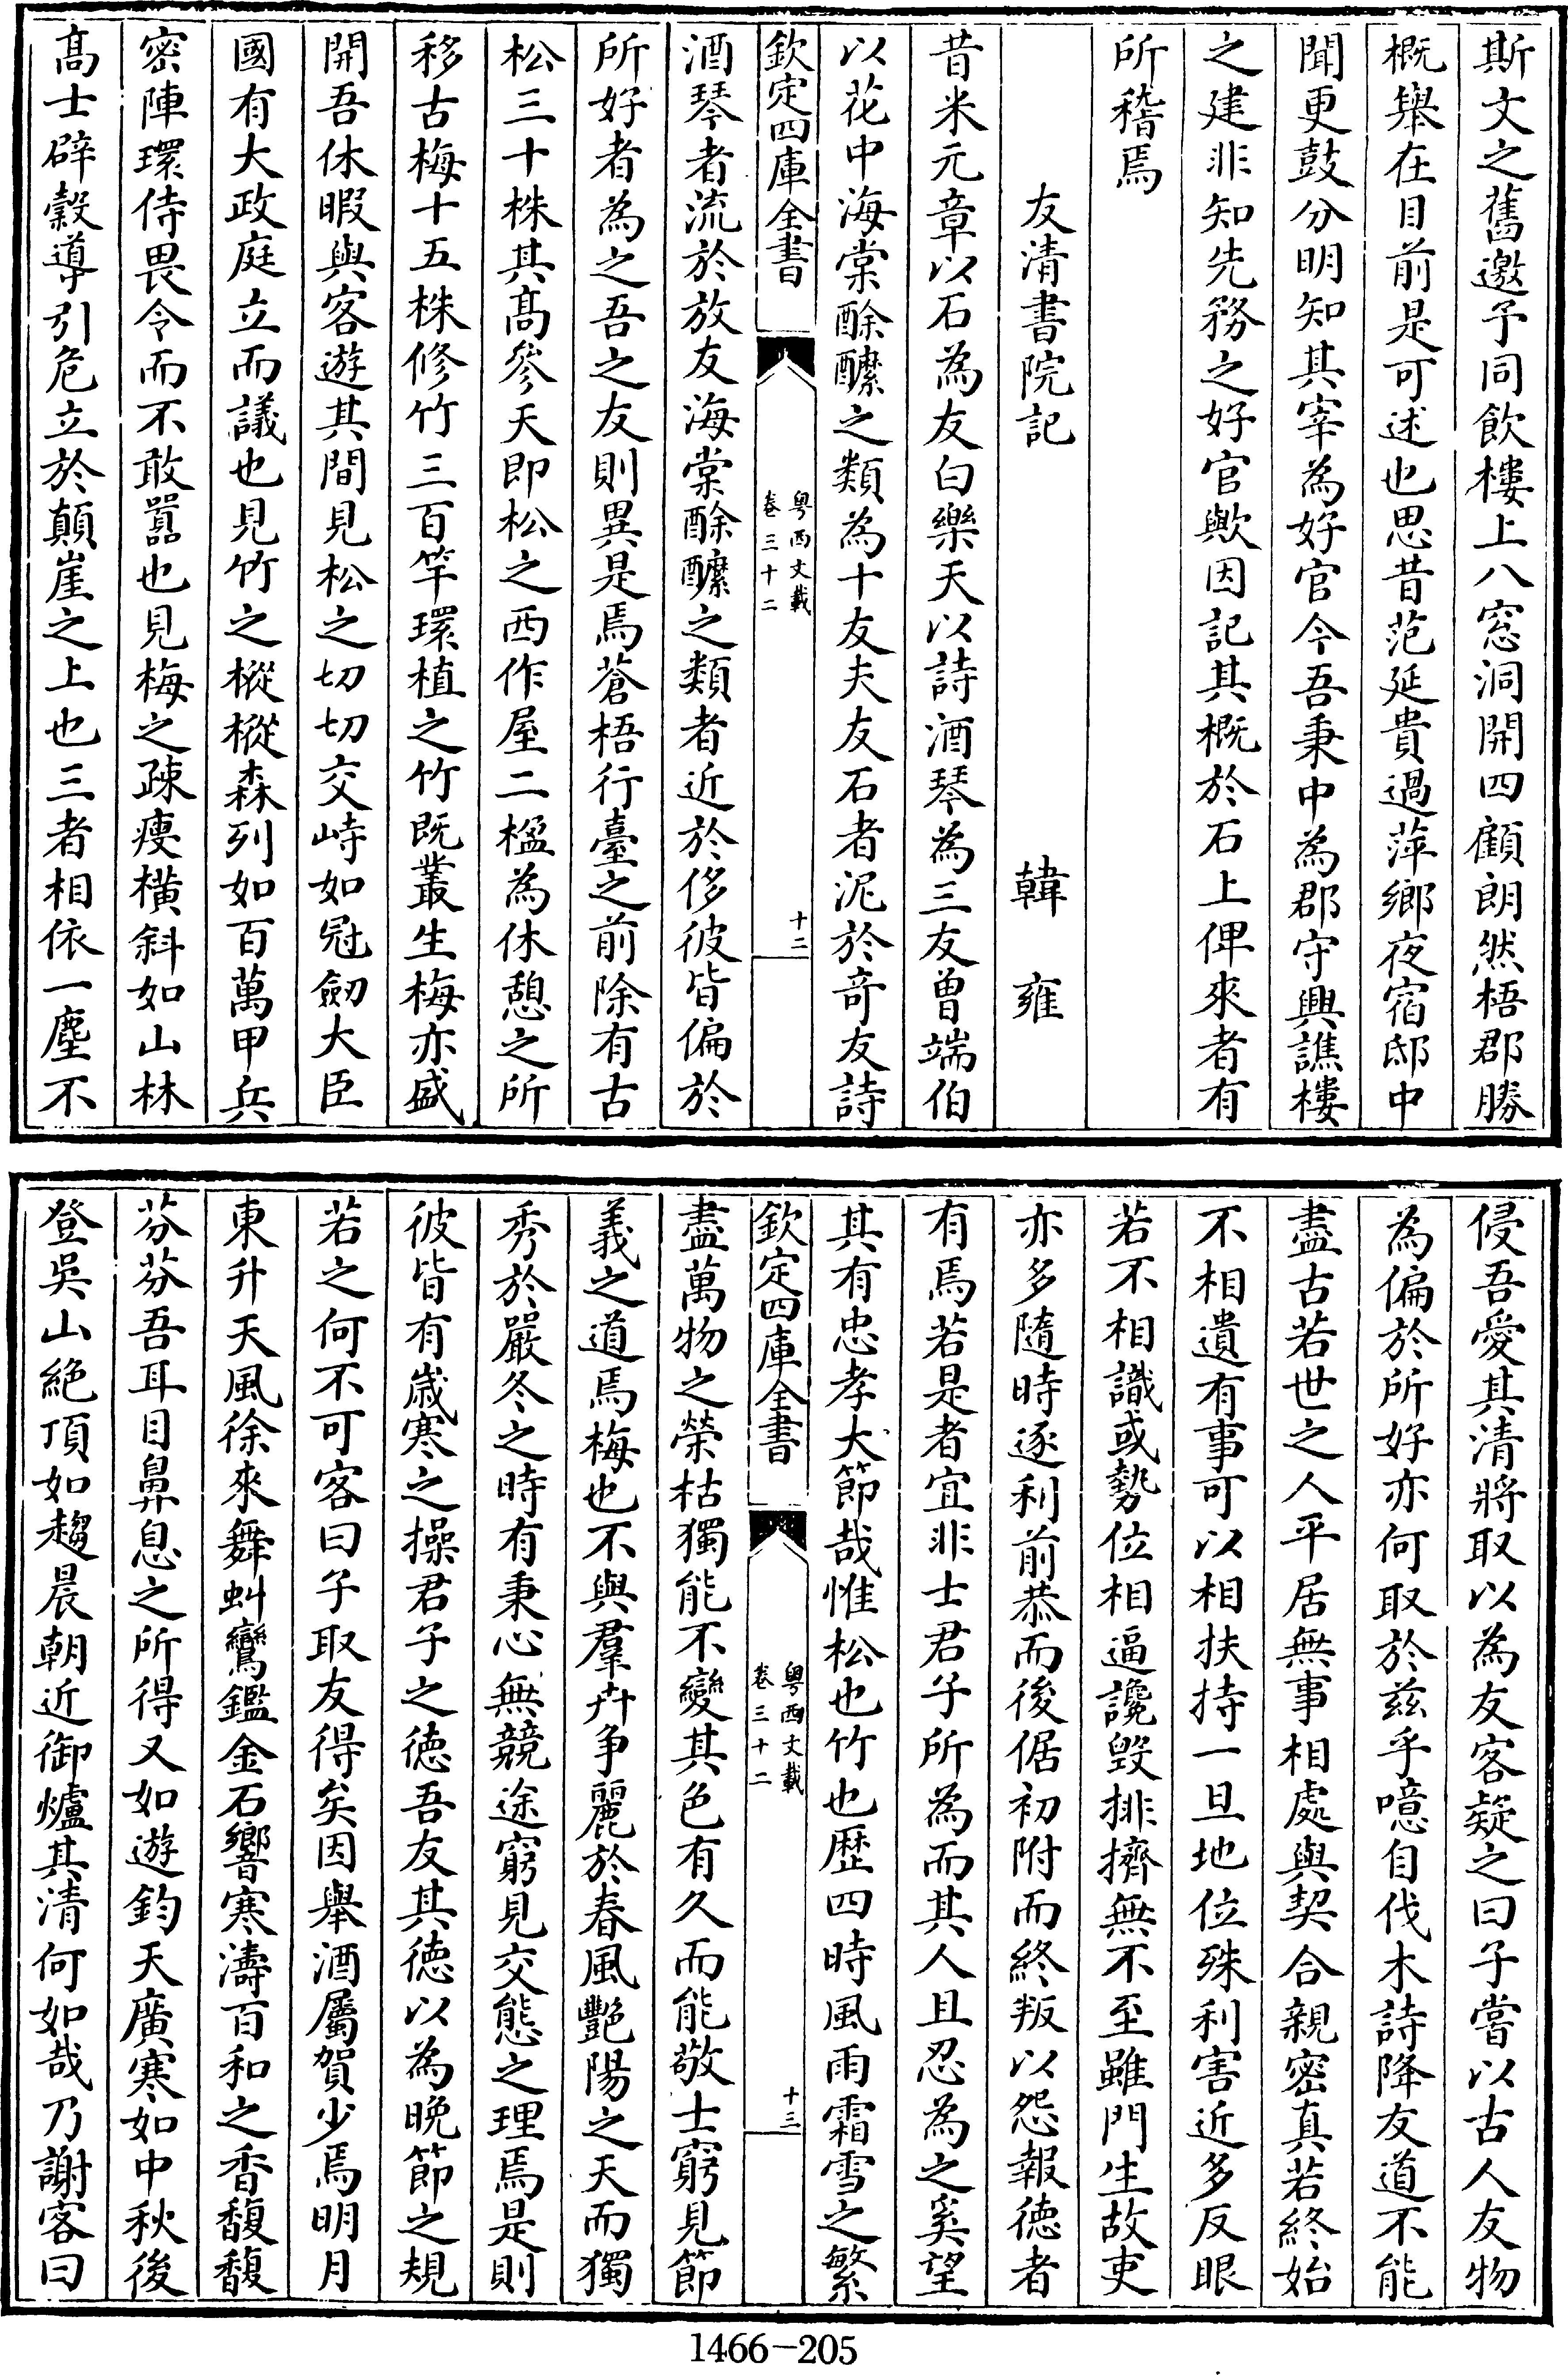 斯文之舊邀予同飲樓上八窓洞開四顧朗然梧郡勝
概舉在目前是可述也思昔范延貴過萍鄉夜宿邸中
聞更鼓分明知其宰為好官今吾秉中為郡守興譙樓
之建非知先務之好官歟因記其概於石上俾來者有
所稽焉
友清書院記 韓雍
昔米元章以石為友白樂天以詩酒琴為三友曽端伯
以花中海棠酴醿之類為十友夫友石者泥於奇友詩
欽定四庫全書
粤西文載
卷三十二
十二
酒琴者流於放友海棠酴醿之類者近於侈彼皆偏於
所好者為之吾之友則異是焉蒼梧行臺之前除有古
松三十株其髙參天即松之西作屋二楹為休憩之所
移古梅十五株修竹三百竿環植之竹既叢生梅亦盛
開吾休暇與客遊其間見松之切切交峙如冠劒大臣
國有大政庭立而議也見竹之樅樅森列如百萬甲兵
密陣環侍畏令而不敢嚣也見梅之疎瘦橫斜如山林
髙士辟糓導引危立於顛崖之上也三者相依一塵不
侵吾愛其清將取以為友客疑之曰子嘗以古人友物
為偏於所好亦何取於兹乎噫自伐木詩降友道不能
盡古若世之人平居無事相處與契合親密真若終始
不相遺有事可以相扶持一旦地位殊利害近多反眼
若不相識或勢位相逼讒毁排擠無不至雖門生故吏
亦多隨時逐利前恭而後倨初附而終叛以怨報徳者
有焉若是者宜非士君子所為而其人且忍為之奚望
其有忠孝大節哉惟松也竹也歴四時風雨霜雪之繁
欽定四庫全書
粤西文載
卷三十二
十三
盡萬物之榮枯獨能不變其色有久而能敬士窮見節
義之道焉梅也不與羣卉争麗於春風艷陽之天而獨
秀於嚴冬之時有秉心無競途窮見交態之理焉是則
彼皆有歲寒之操君子之徳吾友其徳以為晚節之規
若之何不可客曰子取友得矣因舉酒屬賀少焉明月
東升天風徐來舞虯鸞鑑金石響寒濤百和之香馥馥
芬芬吾耳目鼻息之所得又如遊鈞天廣寒如中秋後
登吳山絶頂如趨晨朝近御爐其清何如哉乃謝客曰
1466-205